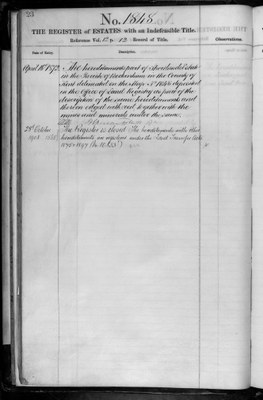 No. 1848
THE REGISTER of ESTATES with an Indefeasible Title.
Reference Vol. 12 Record of Title.
Date of Entry. Description. Observations.
April 18 1872 The hereditaments part of Estate
in the Parish of Beckenham in the County of
Kent delineated on the Map No. 1848 deposited
in the Office of Land Registry as part of the
description of the same hereditaments and
thereon edged with red together with the
mines and minerals under the same.
October The Register is closed. The hereditaments with other
hereditaments are registered under the Land Transfer Acts
1875 & 1897